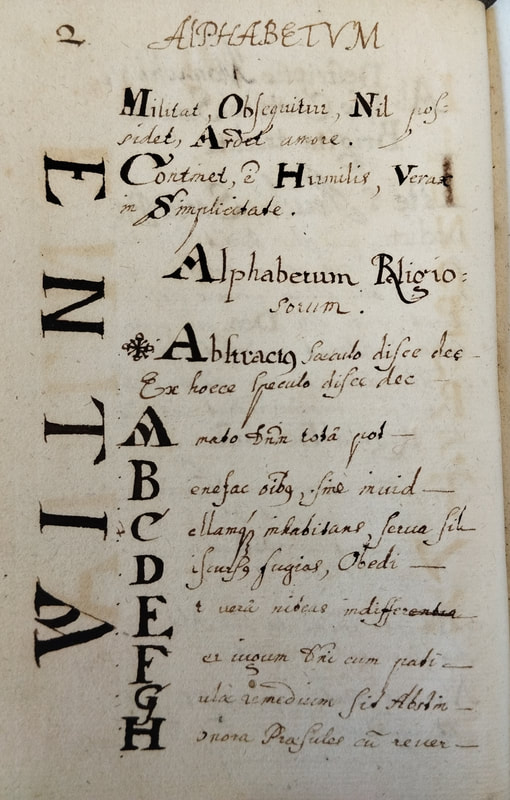 2
ALPHABETVM
Militat, Obsequitur, Nil pos-
sidet, Ardet amore.
Continet, ē Humilis, Verax
in Simplicitate.
Alphabetum Religio:
sorum.
Abstractus sæculo disce dee
Ex hoece speculo disce dec
A mato Dnm totâ pot
B enefac oibus, sine invid
C ellamque inhabitans, serva sil
D iscursus fugias, Obedi
E t verâ niteas indifferentia
F er iugum Dni cum pati
G ulæ remedium sit Abstin
H onora Præsules cū rever